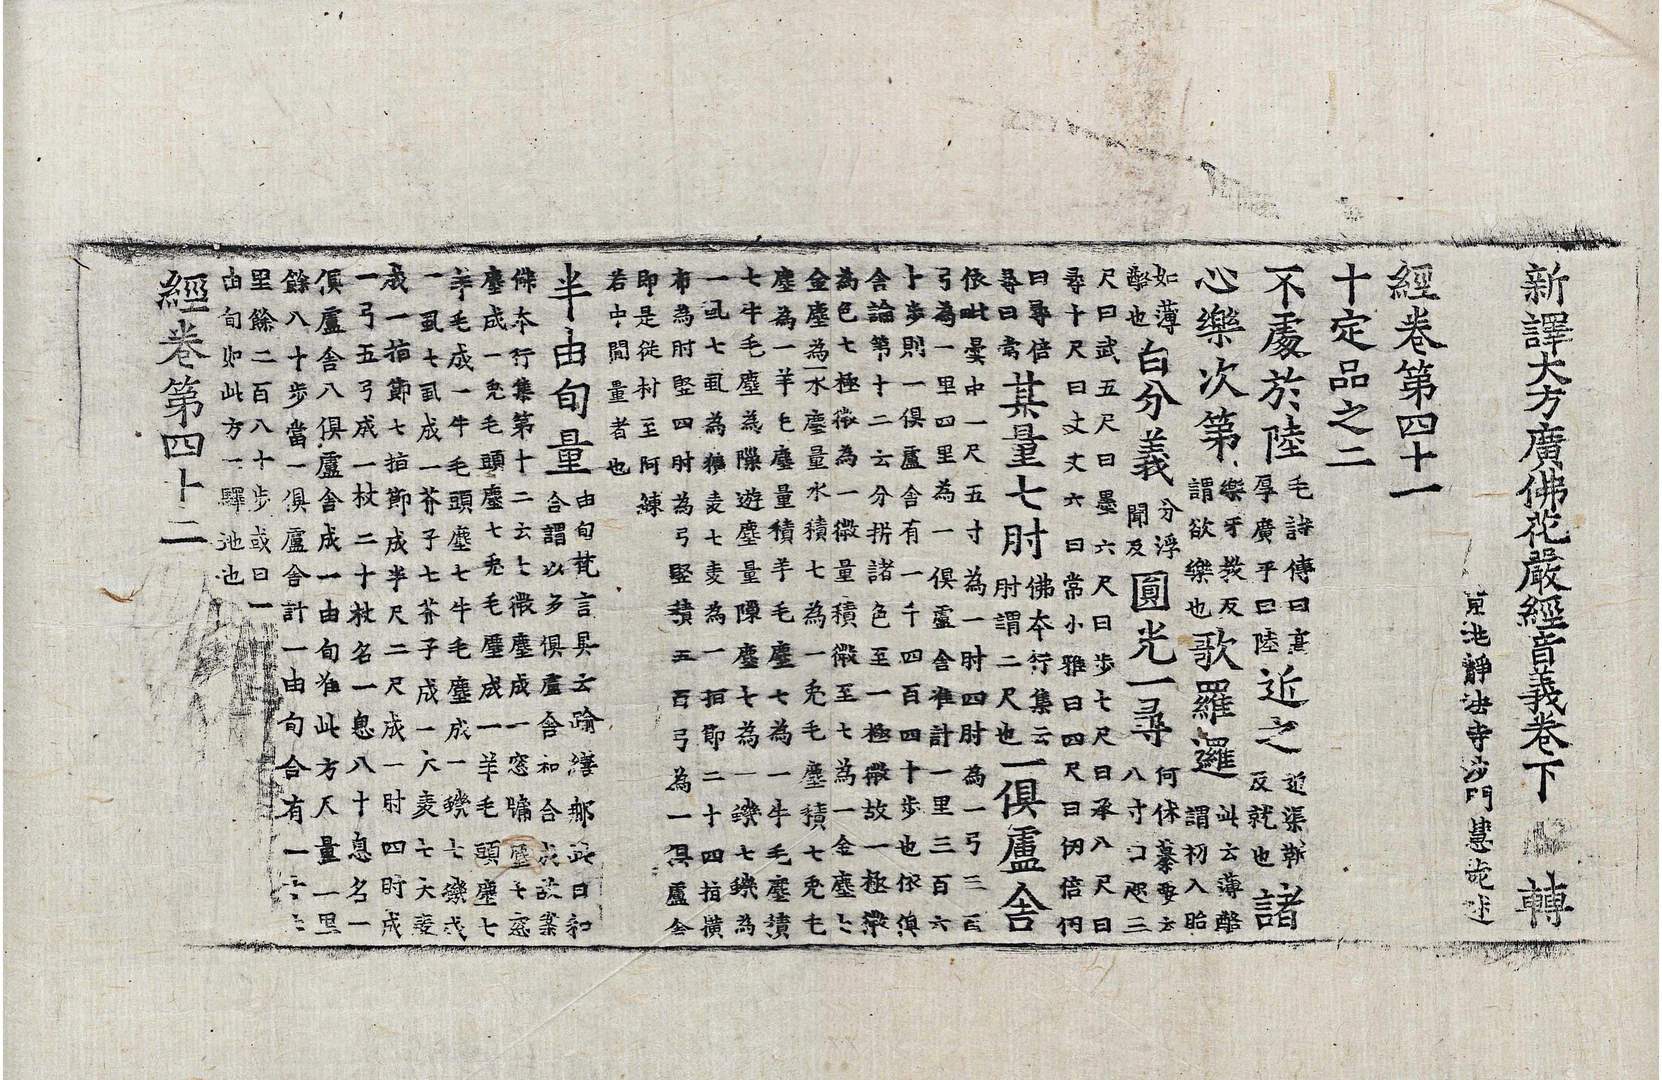 新譯大方廣佛花嚴經音義卷下 轉
京兆靜法寺沙門慧苑述
經卷第四十一
十定品之二
不處於陸 毛詩傳曰高厚廣平曰陸 近之 近渠靳反就也 諸
心樂次第 樂五教反謂欲樂也 歌羅邏 此云薄酪謂初入胎
如薄酪也 百分義 分浮聞反 圓光一尋 何休纂要云八寸曰咫三
尺曰武五尺曰墨六尺曰步七尺曰承八尺曰
尋十尺曰丈丈六曰常小雅曰四尺曰仞倍仞
曰尋倍尋曰常 其量七肘 佛本行集云肘謂二尺也 一俱盧舍
依此疊中一尺五寸為一肘四肘為一弓三百
弓為一里四里為一俱盧舍准計一里三百六
十步則一俱盧舍有一千四百四十步也依俱
舍論第十二云分拆諸色至一極微故一極微
為色七極微為一微量積微至七為一金塵七
金塵為一水塵量水積七為一兔毛塵積七兔毛
塵為一羊毛塵量積羊毛塵七為一牛毛塵積
七牛毛塵為隙遊塵量隙塵七為一蟣七蟣為
一虱七虱為穬麦七麦為一指節二十四指橫
布為肘竪四肘為弓竪積五百弓為一俱盧舍
即是從村至阿練
若中間量者也
半由旬量 由旬梵言具云踰繕那此曰和合謂以多俱盧舍和合成故案
佛本行集第十二云七微塵成一窓牖塵七窓
塵成一兔毛頭塵七兔毛塵成一羊毛頭塵七
羊毛成一牛毛頭塵七牛毛塵成一蟣七蟣成
一虱七虱成一芥子七芥子成一大麥七大麥
成一指節七指節成半尺二尺成一肘四肘成
一弓五弓成一杖二十杖名一息八十息名一
俱盧舍八俱盧舍成一由旬准此方尺量一里
餘八十步當一俱盧舍計一由旬合有一十七
里餘二百八十步或曰一
由旬如此方一驛池也
經卷第四十二